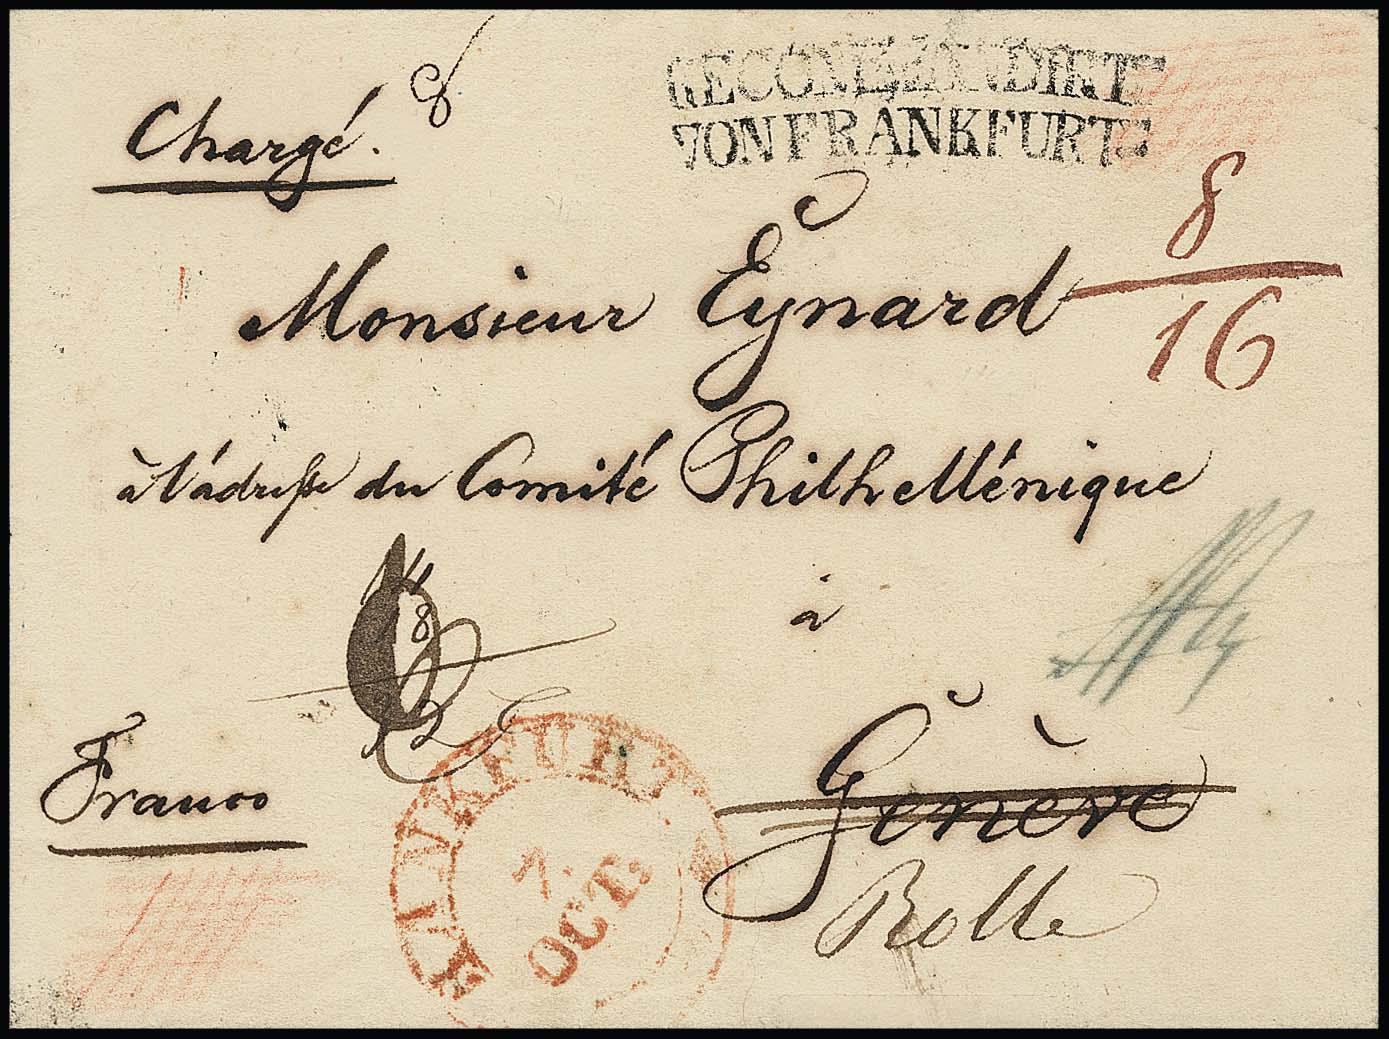 Chargé. 8
RECOMMANDIRT
VON FRANKFURT
8
16
Monsieur Eynard
à l'adresse du Comité Philhellénique
à
8
Franco
FRANKFURT
7.
OCT.
Genève
Rolle